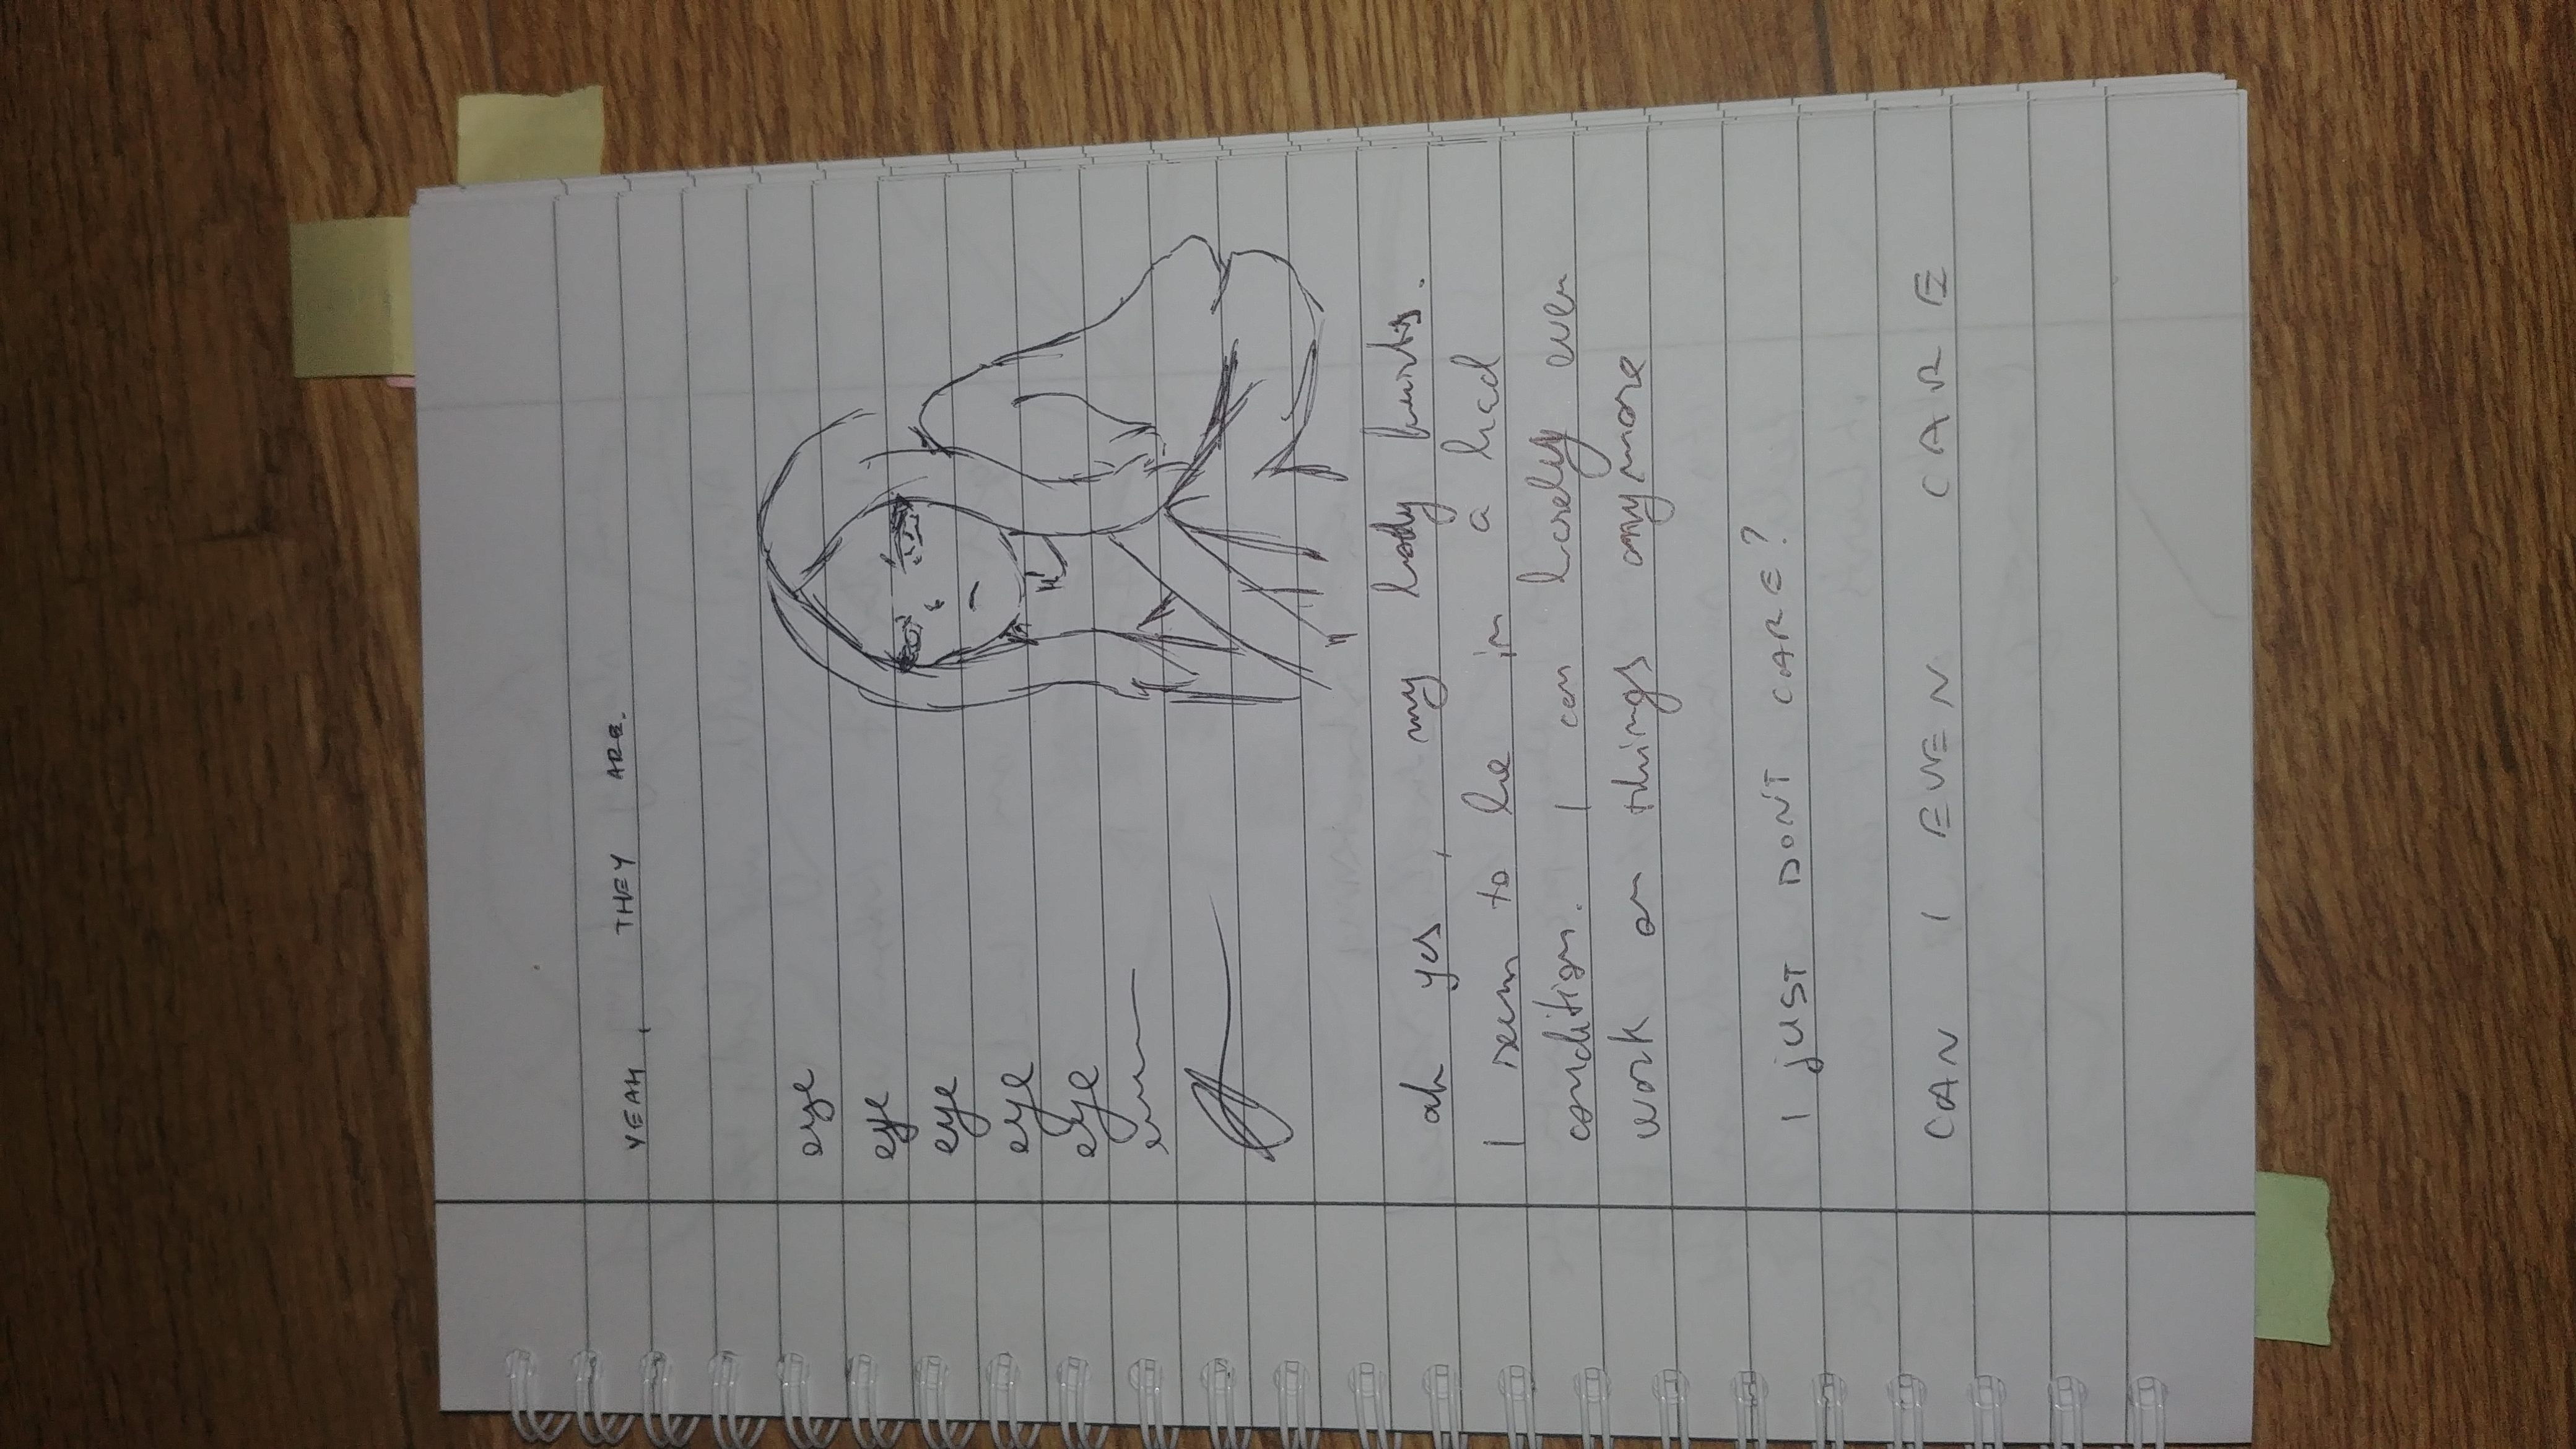 YEAH, THEY ARE.
eye
eye
eye
eye
eye
ah yes, my body hurts.
I seem to be in a bad
condition. I can barely even
work on things anymore
I JUST DON'T CARE?
CAN I EVEN CARE